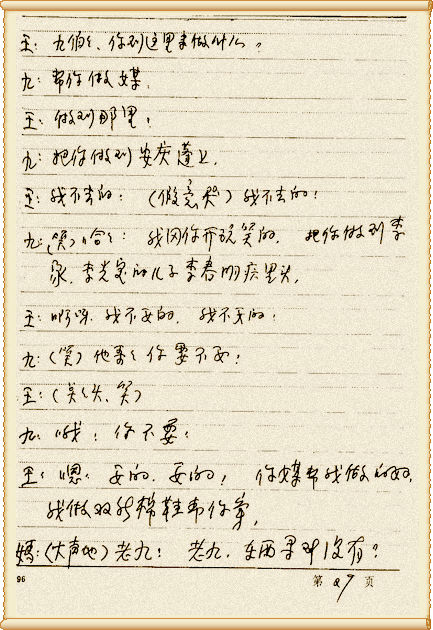 王：九伯々、你到这里来做什么。
九：帮你做媒，
王：做到那里，
九：把你做到安庆
王：我不去的：（假意哭）我不去的！
九：（笑）哈々：我同你开玩笑的，把你做到李
家，李 的儿子李春明 里头，
王：啊呀，我不要的，我不要的！
九：（笑）他哥々你要不要？
王：（ 笑）
九：哦！你不要？
王：嗯，要的，要的！你媒帮我做的好，
我做双新棉鞋帮你 ，
媽：（大声地）老九！老九，东西拿到没有？
96 第 97 页